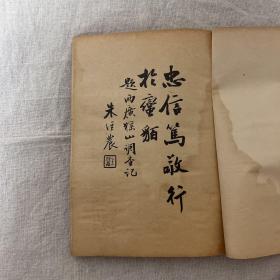 忠信篤敬行
於蠻貊
題兩廣猺山調查記
朱經農